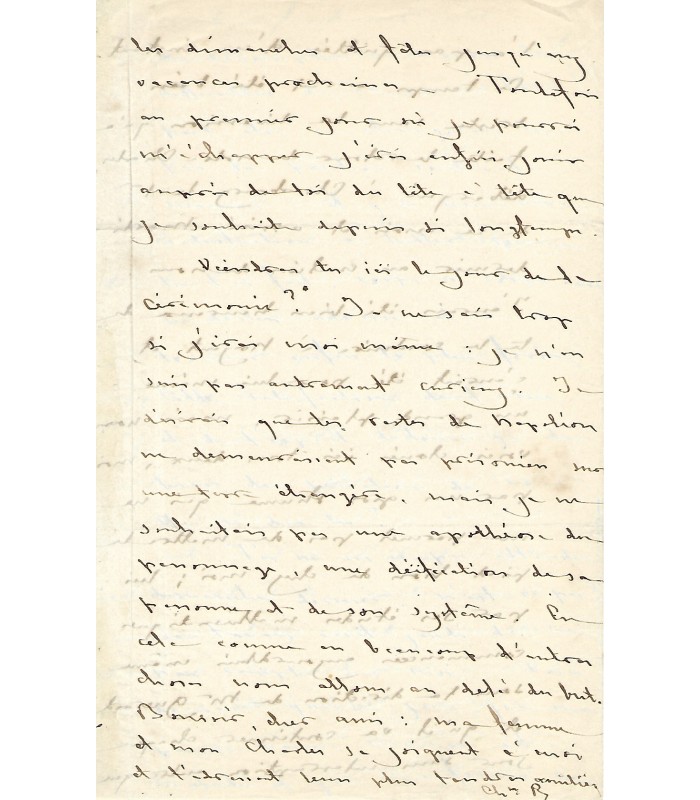 les dimanches et fêtes jusqu'aux
vacances prochaines — Toutefois
au premier jour où je pourrai
m'échapper j'irai enfin jouir
auprès de toi du tête à tête que
je souhaite depuis si longtemps.
Viendras tu ici le jour de la
Cérémonie ? Je ne sais trop
si j'irai moi même : je n'en
suis pas autrement curieux. Je
désirais que les restes de Napoléon
ne demeurassent pas prisonniers sur
une terre étrangère, mais je ne
souhaitais pas une apothéose du
personnage, une déification de sa
personne et de son système. En
cela comme en beaucoup d'autres
choses nous allons au delà du but.
Bonsoir, cher ami : ma femme
et mon Charles se joignent à moi
et t'adressent leurs plus tendres amitiés